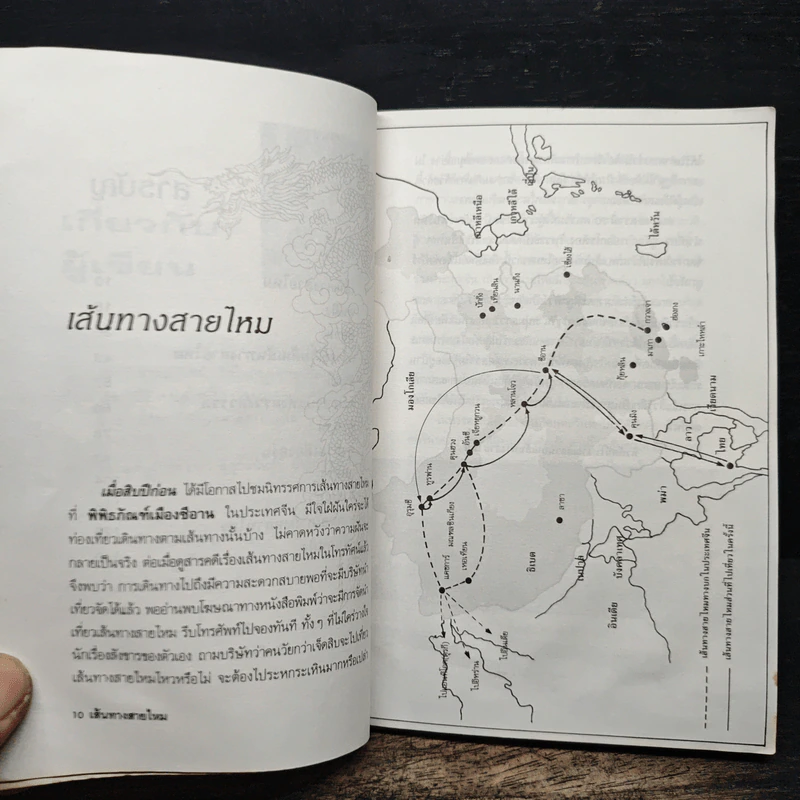 เส้นทางสายไหม
เมื่อสิบปีก่อน ได้มีโอกาสไปชมนิทรรศการเส้นทางสายไหม
ที่ พิพิธภัณฑ์เมืองซีอาน ในประเทศจีน มีใจใฝ่ฝันใคร่จะได้
ท่องเที่ยวเดินทางตามเส้นทางนั้นบ้าง ไม่คาดหวังว่าความฝันจะ
กลายเป็นจริง ต่อเมื่อดูสารคดีเรื่องเส้นทางสายไหมในโทรทัศน์แล้ว
จึงพบว่า การเดินทางไปถึงมีความสะดวกสบายพอที่จะมีบริษัทนำ
เที่ยวจัดได้แล้ว พออ่านพบโฆษณาทางหนังสือพิมพ์ว่าจะมีการจัดนำ
เที่ยวเส้นทางสายไหม รีบโทรศัพท์ไปจองทันที ทั้งๆ ที่ไม่ใคร่วางใจ
นักเรื่องสังขารของตัวเอง ถามบริษัทว่าคนวัยกว่าเจ็ดสิบจะไปเที่ยว
เส้นทางสายไหมไหวหรือไม่ จะต้องไประหกระเหินมากหรือเปล่า
10 เส้นทางสายไหม
มองโกเลีย
เกาหลีเหนือ
เกาหลีใต้
ญี่ปุ่น
ไต้หวัน
ปักกิ่ง
เทียนสิน
นานกิง
เซี่ยงไฮ้
ซีอาน
หลานโจว
กวางเจา
มาเก๊า
ฮ่องกง
กุ้ยหลิน
เกาะไหหลำ
คุนมิง
เวียดนาม
ลาว
ไทย
พม่า
อุรุมชี
ทูรฟาน
ตุนฮวง
อันซี
เจียยุกวน
มณฑลซินเกียง
แคชการ์
เหอเทียน
ลาซา
ธิเบต
เนปาล
บังคลาเทศ
อินเดีย
ไปอิหร่าน
ไปอินเดีย
เส้นทางสายไหมทางบกในประเทศจีน
เส้นทางสายไหมส่วนที่ไปเที่ยวในครั้งนี้